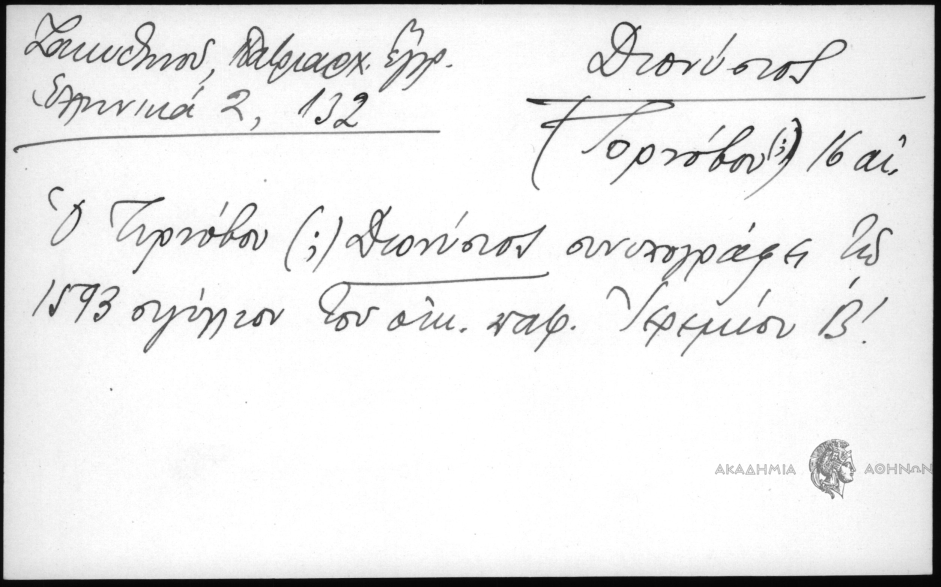 Ζακυθηνού, Πατριαρχ. Έγγρ.
Ελληνικά 2, 132
Διονύσιος
(Τορνόβου (;)) 16 αἰ.
Ὁ Τυρνόβου (;) Διονύσιος συνυπογράφει τὸ
1593 σιγίλλιον τοῦ οἰκ. πατρ. Ἰερεμίου Β'.
ΑΚΑΔΗΜΙΑ ΑΘΗΝΩΝ